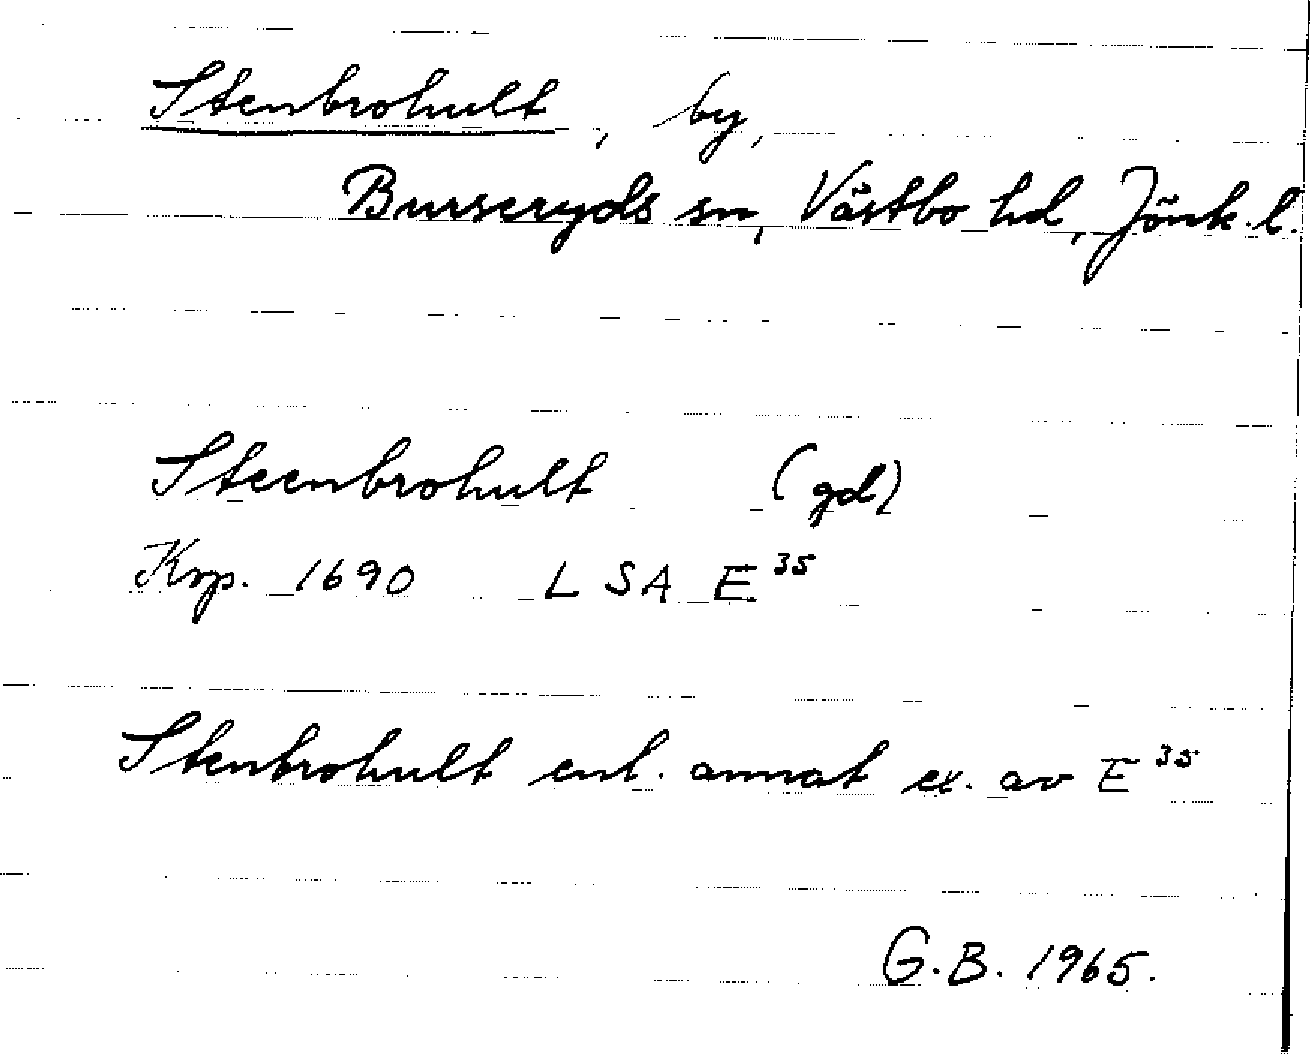 Stenbrohult, by,
Burseryds sn, Västbo hd, Jönk. l.
Steenbrohult (gd)
Krp. 1690 LSA E³⁵
Stenbrohult enl. annat ex. av E³⁵
G.B. 1965.